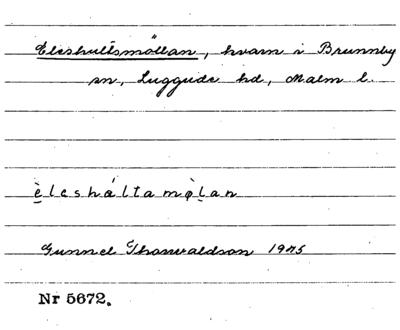 Eleshultsmöllan, kvarn i Brunnby
sn, Luggude hd, Malm l.
è l e s h á l t a m ø̀ l a n
Gunnel Thorvaldson 1975
Nr 5672.